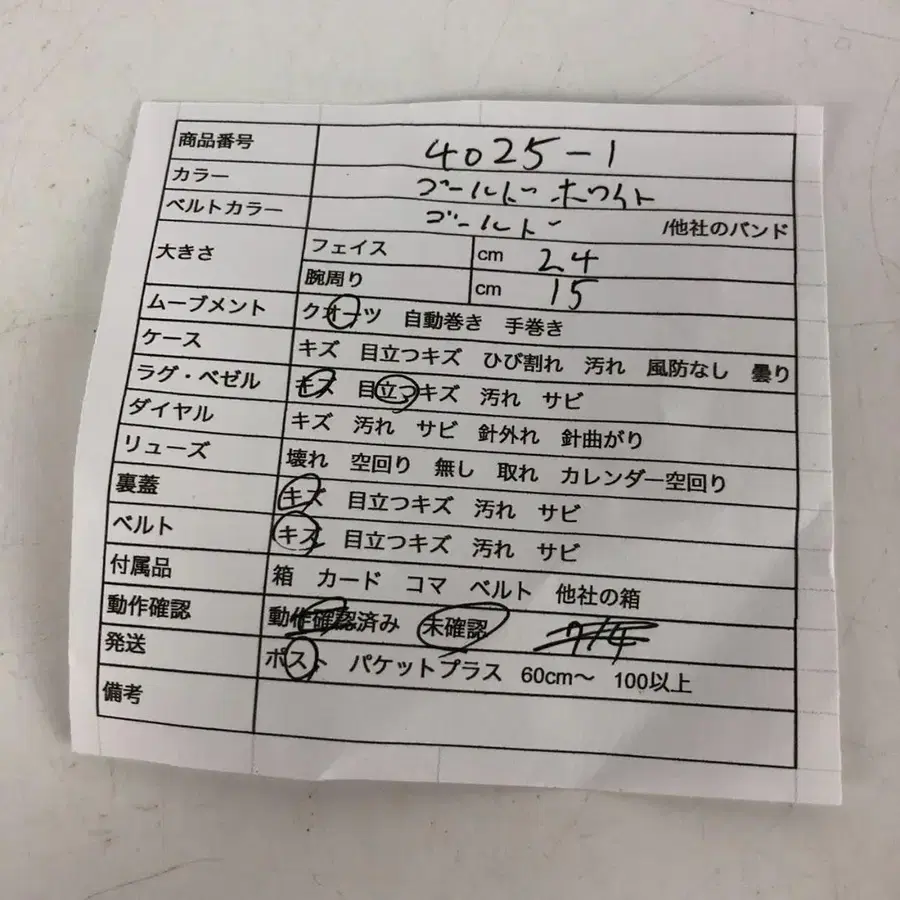 商品番号 4025-1
カラー ゴールド ホワイト
ベルトカラー ゴールド /他社のバンド
大きさ フェイス cm 24
腕周り cm 15
ムーブメント クオーツ 自動巻き 手巻き
ケース キズ 目立つキズ ひび割れ 汚れ 風防なし 曇り
ラグ・ベゼル キズ 目立つキズ 汚れ サビ
ダイヤル キズ 汚れ サビ 針外れ 針曲がり
リューズ 壊れ 空回り 無し 取れ カレンダー空回り
裏蓋 キズ 目立つキズ 汚れ サビ
ベルト キズ 目立つキズ 汚れ サビ
付属品 箱 カード コマ ベルト 他社の箱
動作確認 動作確認済み 未確認 7/4
発送 ポスト パケットプラス 60cm〜 100以上
備考